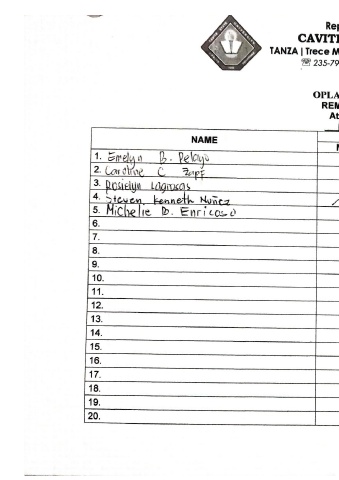 Rep
CAVIT
TANZA | Trece M
☏ 235-79
OPLA
REM
At
NAME
1. Emelyn B. Pelayo
2. Caroline C. Zapf
3. Roselyn Lagrosas
4. Steven Kenneth Muñez
5. Michelle B. Enricoso
6.
7.
8.
9.
10.
11.
12.
13.
14.
15.
16.
17.
18.
19.
20.